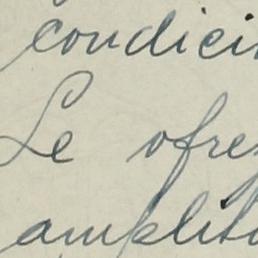 condici
Le ofre
amplit